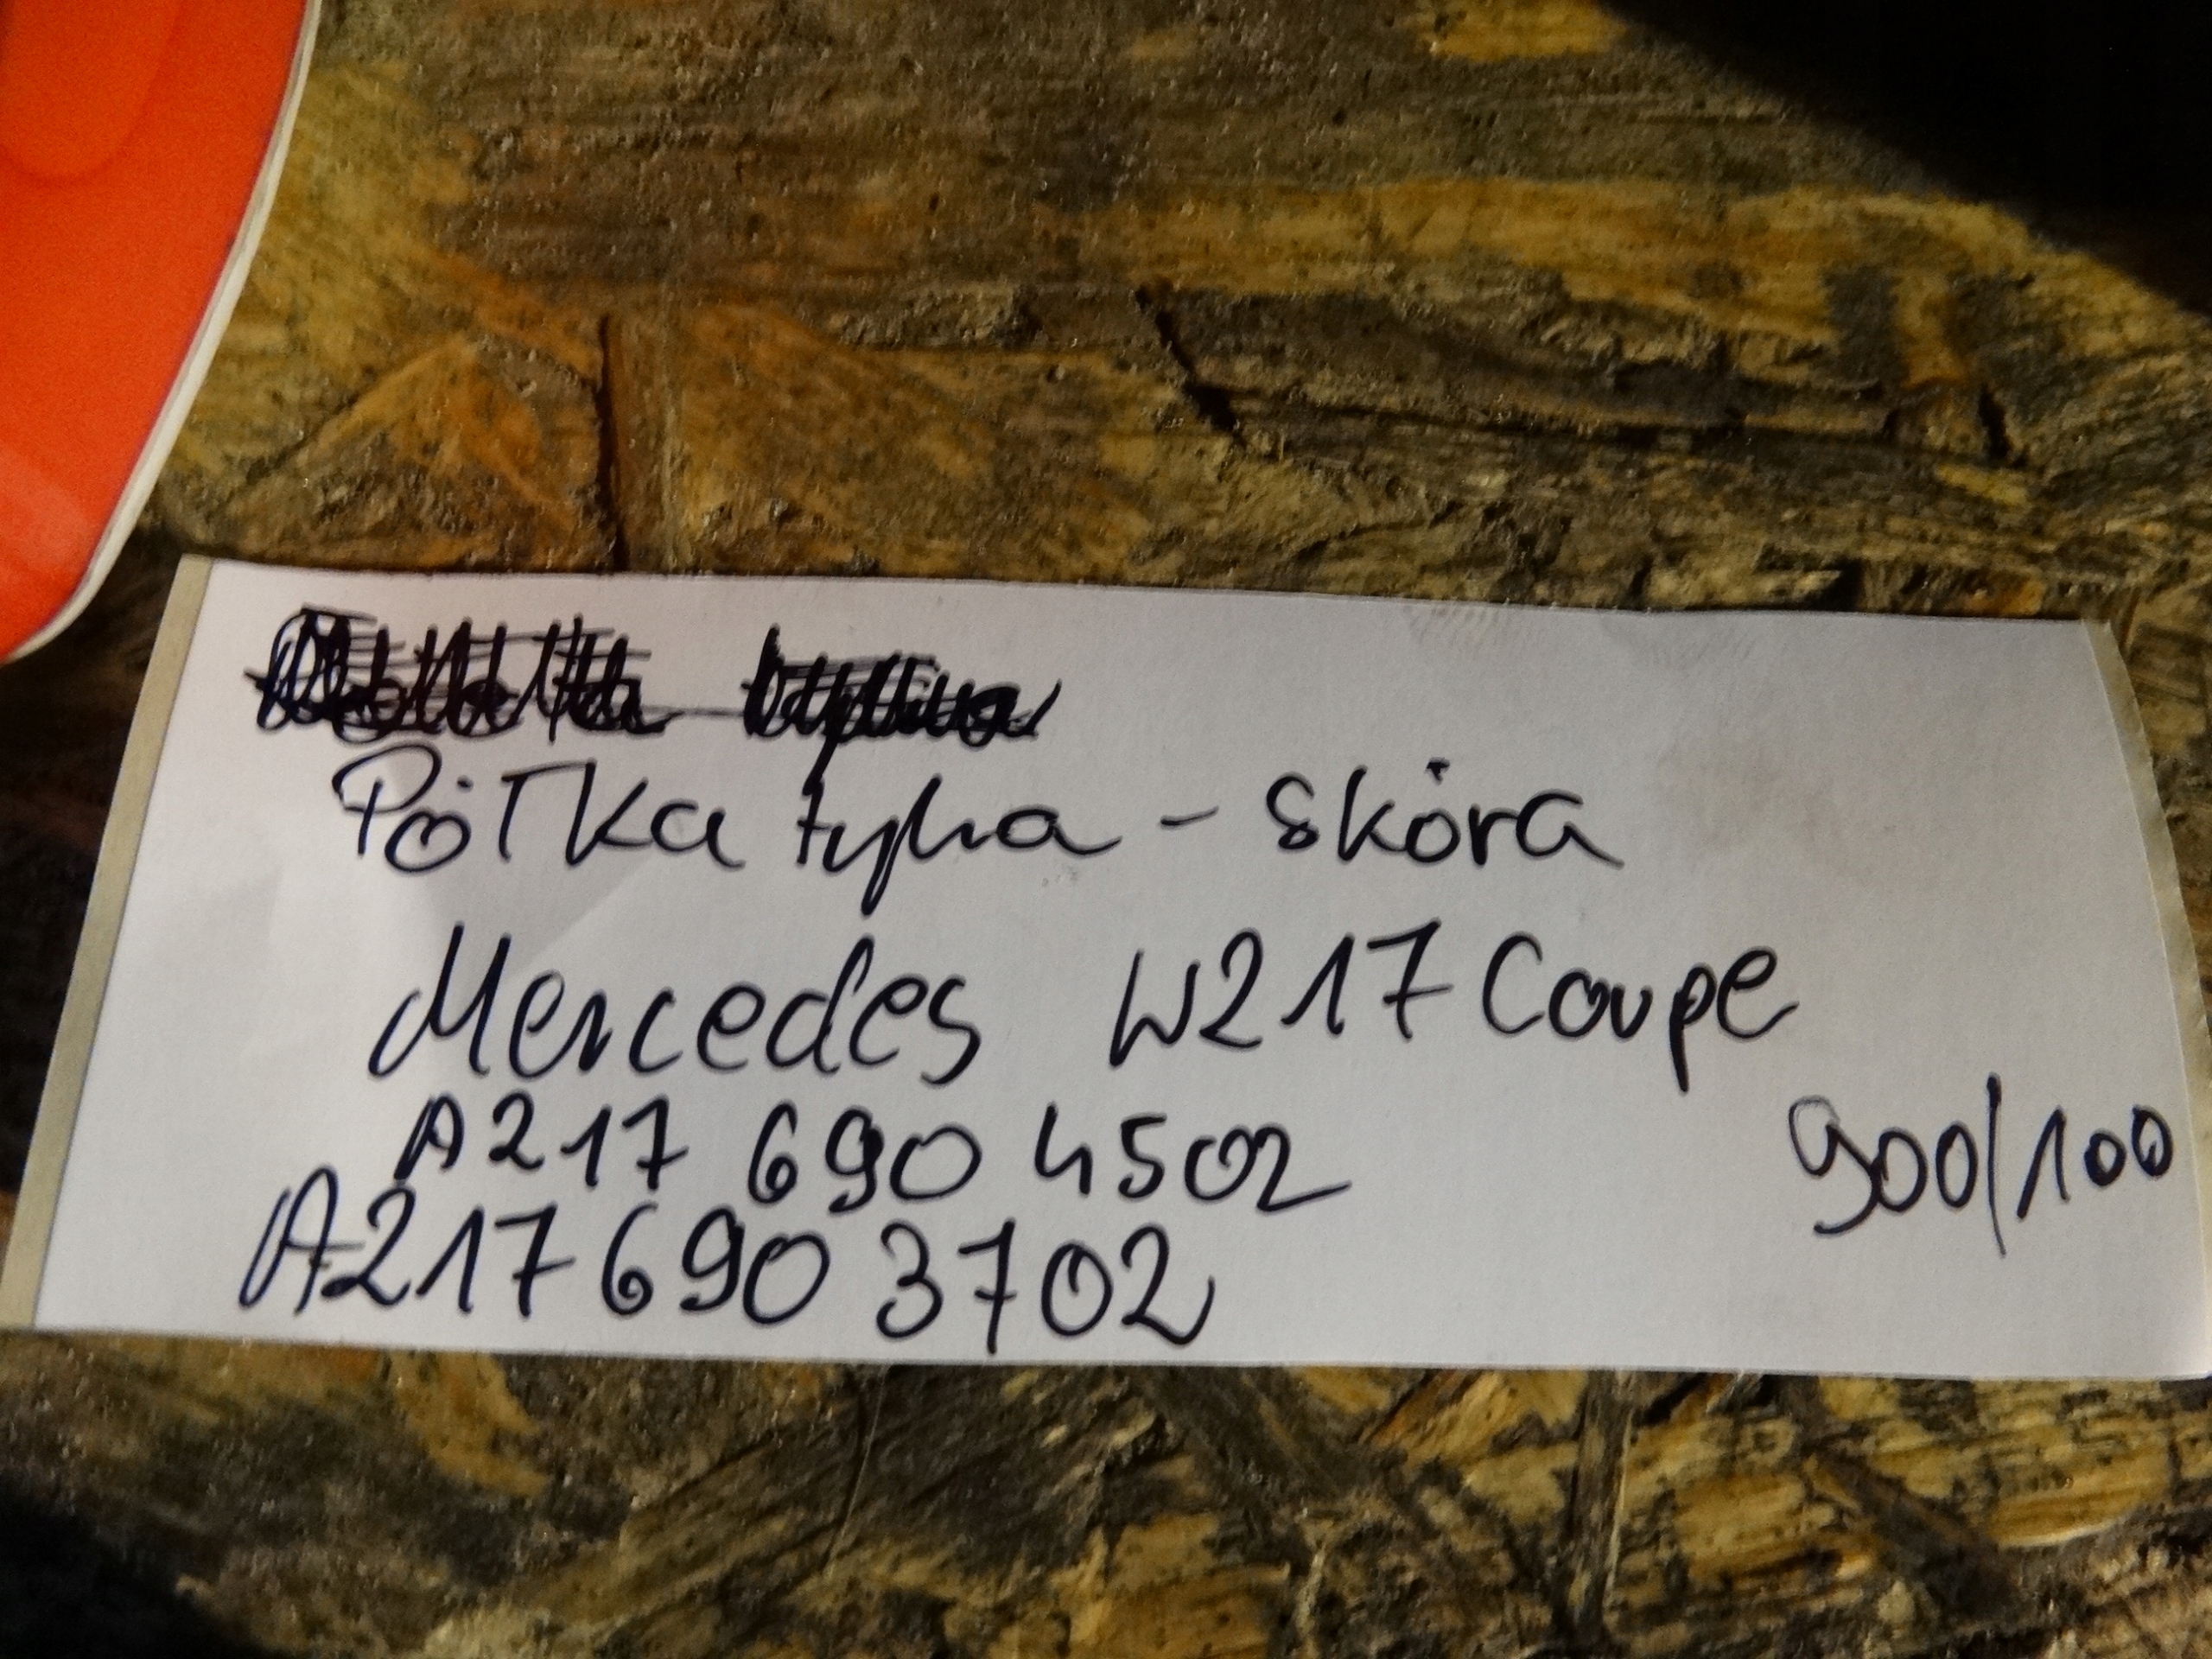 Półka tylna - skóra
Mercedes W217 Coupe
A217 690 4502
900/100
A217 690 3702